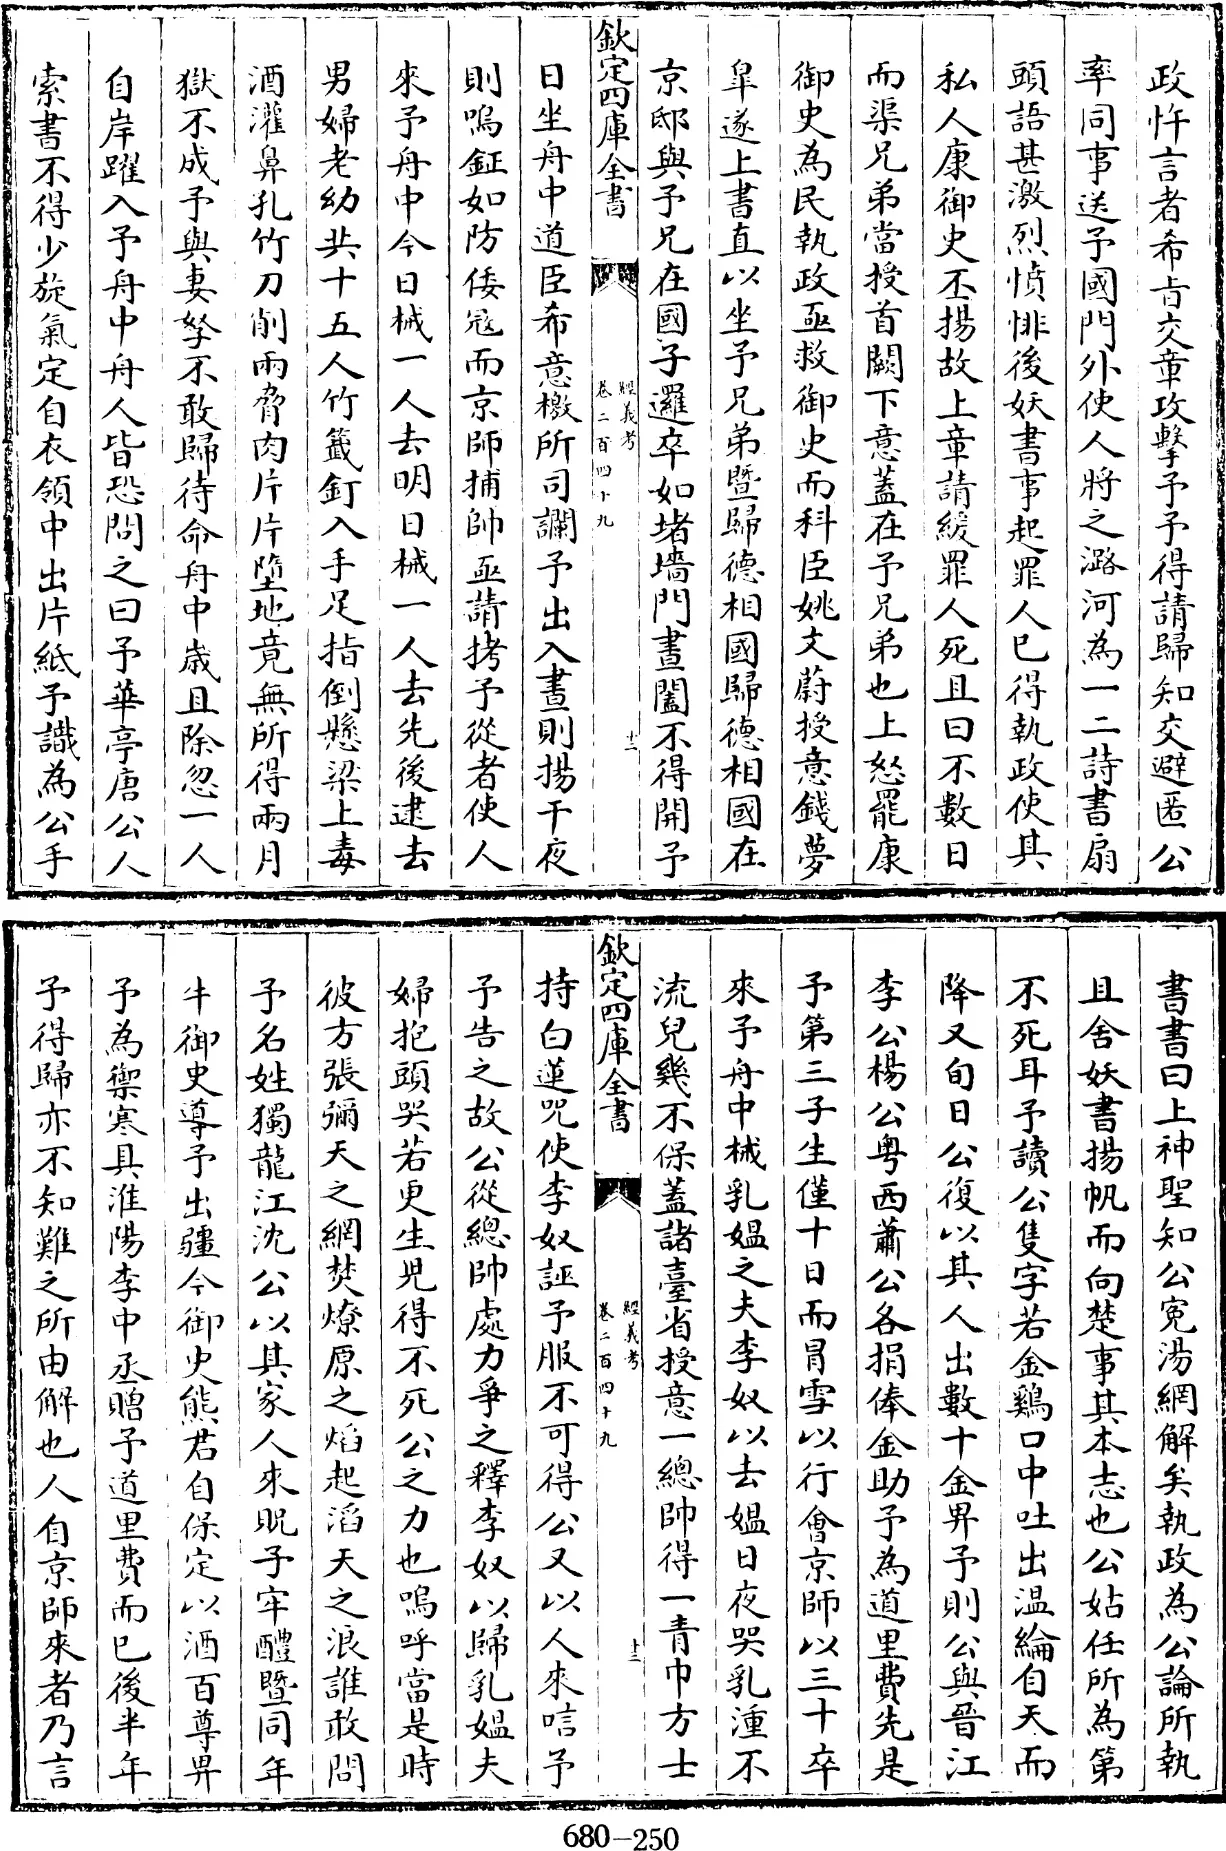 政忤言者希旨交章攻擊予予得請歸知交避匿公
率同事送予國門外使人將之潞河為一二詩書扇
頭語甚激烈憤悱後妖書事起罪人已得執政使其
私人康御史丕揚故上章請緩罪人死且曰不數日
而渠兄弟當授首闕下意蓋在予兄弟也上怒罷康
御史為民執政亟救御史而科臣姚文蔚授意錢夢
皐遂上書直以坐予兄弟暨歸德相國歸德相國在
京邸與予兄在國子邏卒如堵墻門晝闔不得開予
欽定四庫全書
經義考
卷二百四十九
十二
日坐舟中道臣希意檄所司讕予出入晝則揚干夜
則鳴鉦如防倭寇而京師捕帥亟請拷予從者使人
來予舟中今日械一人去明日械一人去先後逮去
男婦老幼共十五人竹籤釘入手足指倒懸梁上毒
酒灌鼻孔竹刀削兩脅肉片片墮地竟無所得兩月
獄不成予與妻孥不敢歸待命舟中歲且除忽一人
自岸躍入予舟中舟人皆恐問之曰予華亭唐公人
索書不得少旋氣定自衣領中出片紙予識為公手
書書曰上神聖知公寃湯網解矣執政為公論所執
且舍妖書揚帆而向楚事其本志也公姑任所為第
不死耳予讀公隻字若金鷄口中吐出温綸自天而
降又旬日公復以其人出數十金畀予則公與晉江
李公楊公粤西蕭公各捐俸金助予為道里費先是
予第三子生僅十日而冐雪以行會京師以三十卒
來予舟中械乳媼之夫李奴以去媼日夜哭乳湩不
流兒幾不保蓋諸臺省授意一總帥得一青巾方士
欽定四庫全書
經義考
卷二百四十九
十三
持白蓮咒使李奴誣予服不可得公又以人來唁予
予告之故公從總帥處力爭之釋李奴以歸乳媼夫
婦抱頭哭若更生兒得不死公之力也嗚呼當是時
彼方張彌天之網焚燎原之焰起滔天之浪誰敢問
予名姓獨龍江沈公以其家人來貺予牢醴暨同年
牛御史導予出疆今御史熊君自保定以酒百尊畀
予為禦寒具淮陽李中丞贈予道里費而已後半年
予得歸亦不知難之所由解也人自京師來者乃言
680-250